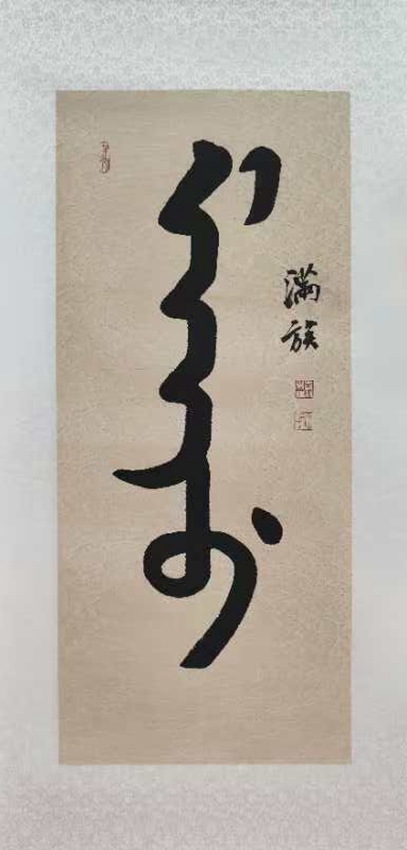 ᠮᠠᠨᠵᡠ
满族